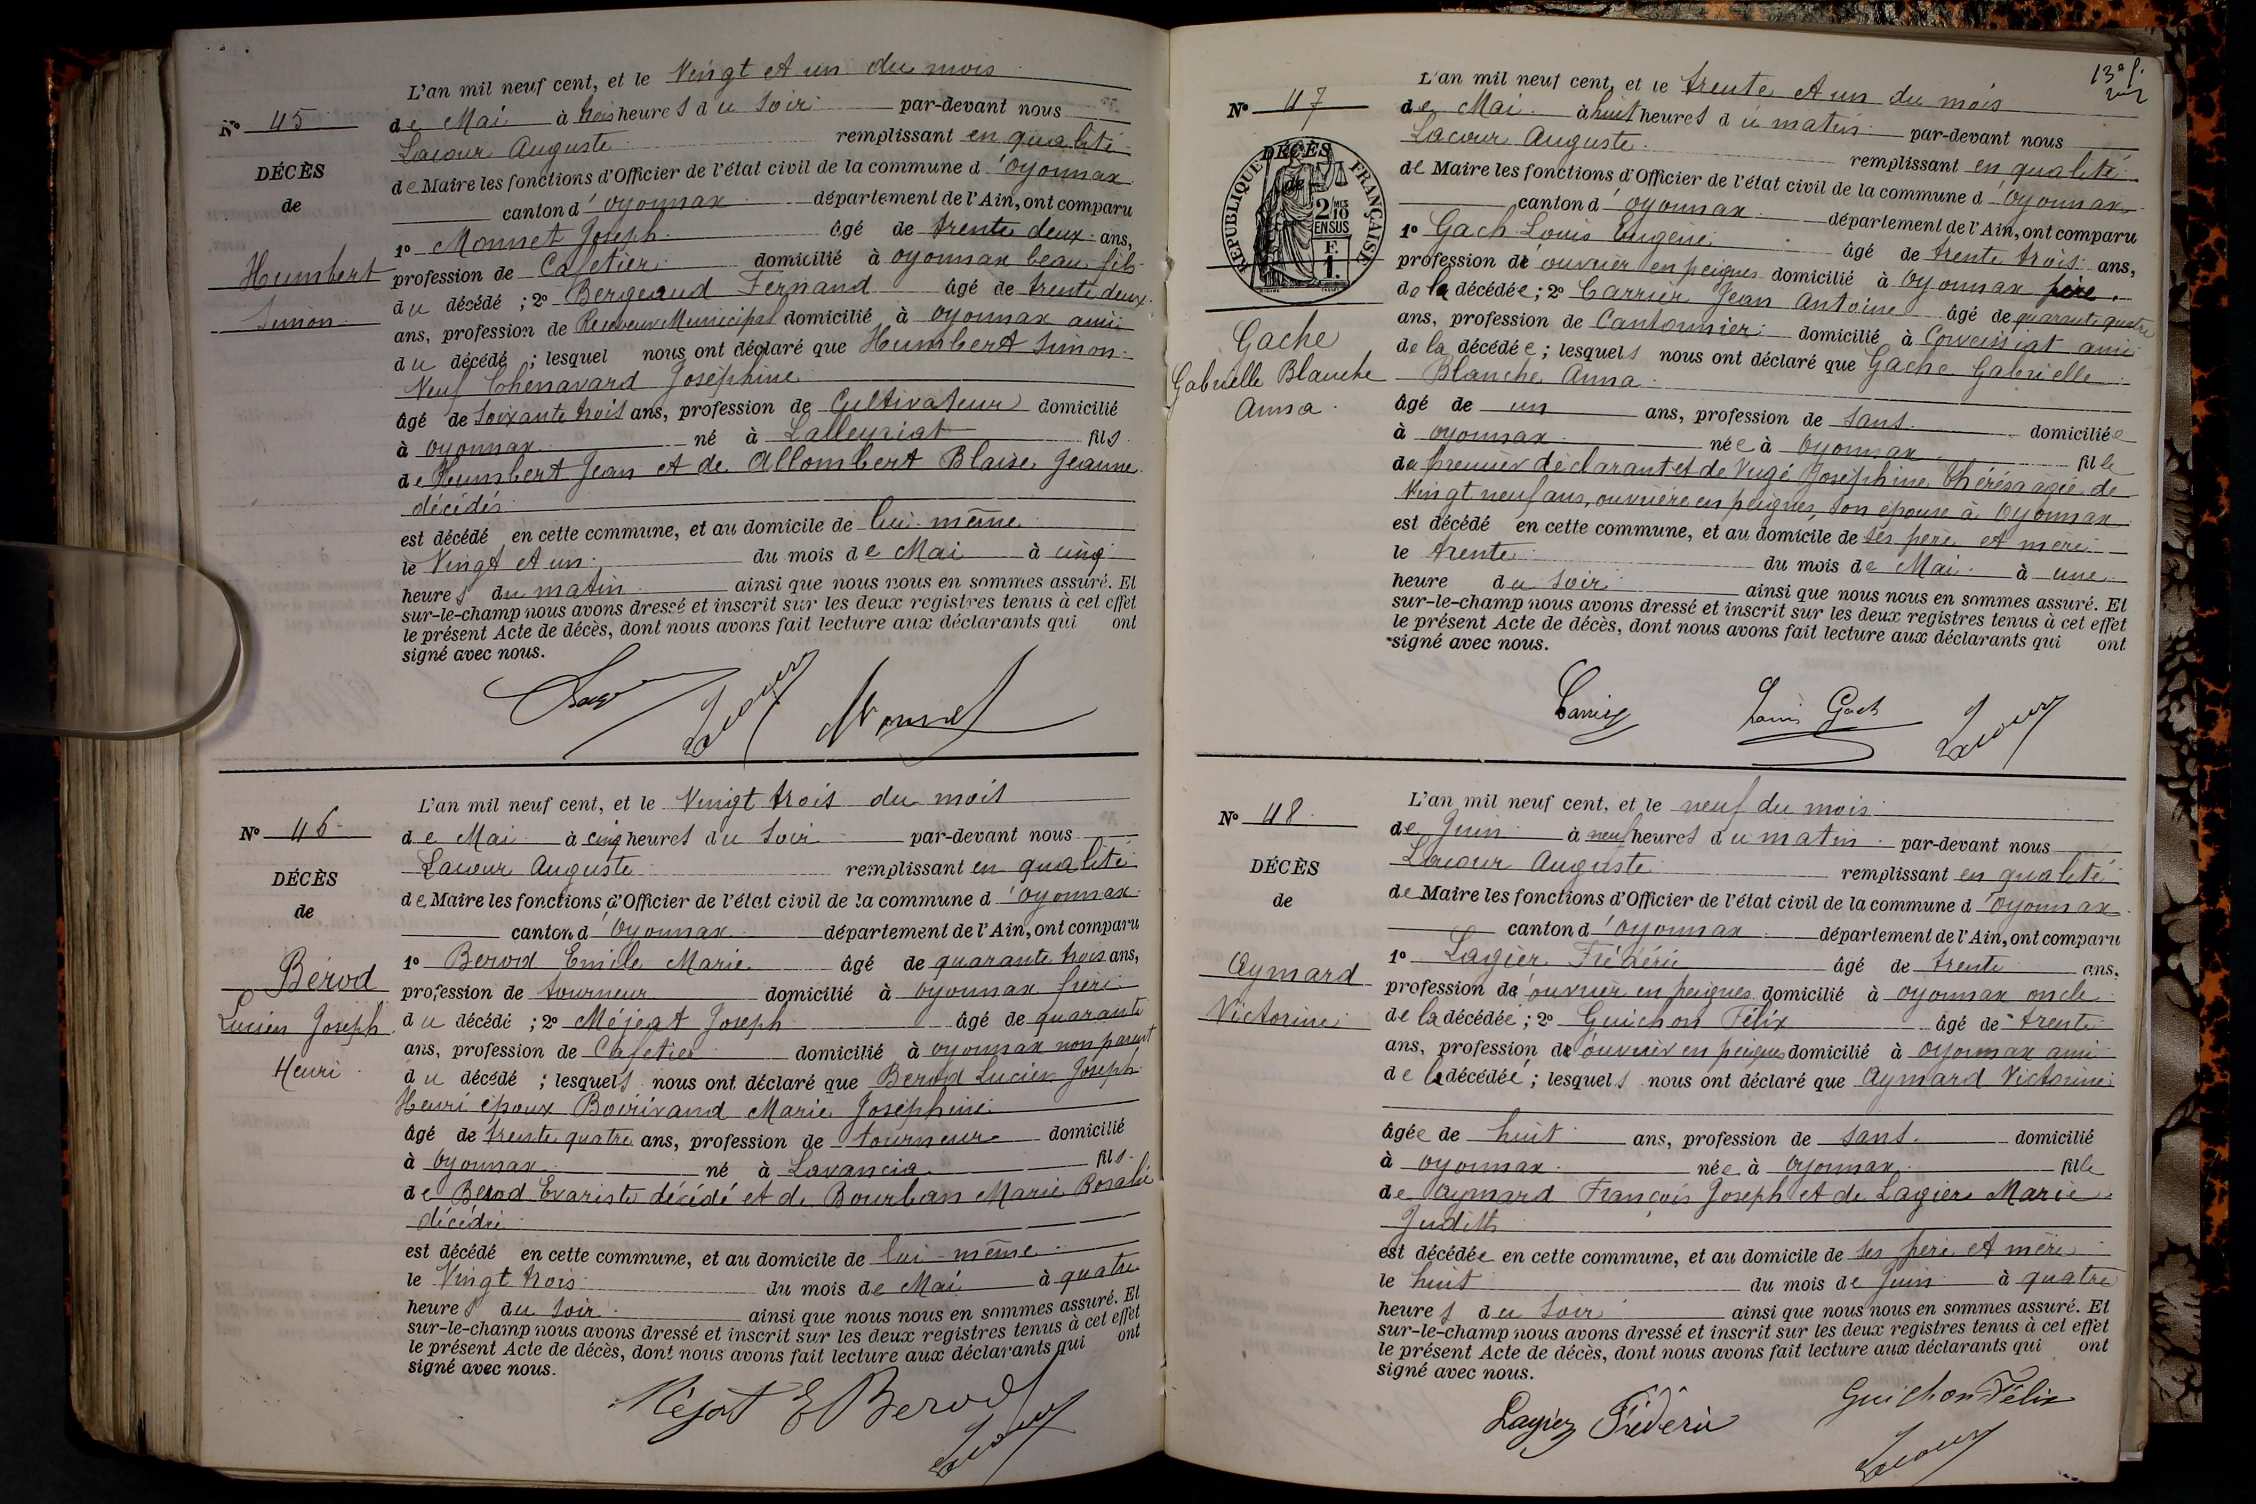 N° 45
DÉCÈS
de
Humbert
Simon
L'an mil neuf cent, et le Vingt et un du mois
de Mai à trois heures du soir par-devant nous
Lacour Auguste remplissant en qualité
de Maire les fonctions d'Officier de l'état civil de la commune d'Oyonnax
canton d'Oyonnax département de l'Ain, ont comparu
1° Monnet Joseph âgé de trente deux ans,
profession de Cafetier domicilié à Oyonnax beau fils
du décédé ; 2° Bergeaud Fernand âgé de trente deux
ans, profession de Receveur Municipal domicilié à Oyonnax ami
du décédé ; lesquel nous ont déclaré que Humbert Simon
Veuf Chenavard Joséphine
âgé de soixante trois ans, profession de Cultivateur domicilié
à Oyonnax né à Lalleyriat fils
de Humbert Jean et de Allombert Blaise Jeanne
décédés
est décédé en cette commune, et au domicile de lui-même
le Vingt et un du mois de Mai à cinq
heures du matin ainsi que nous nous en sommes assuré. Et
sur-le-champ nous avons dressé et inscrit sur les deux registres tenus à cet effet
le présent Acte de décès, dont nous avons fait lecture aux déclarants qui ont
signé avec nous.
Lacour Monnet
N° 46
DÉCÈS
de
Bérod
Lucien Joseph
Henri
L'an mil neuf cent, et le Vingt trois du mois
de Mai à cinq heures du soir par-devant nous
Lacour Auguste remplissant en qualité
de Maire les fonctions d'Officier de l'état civil de la commune d'Oyonnax
canton d'Oyonnax département de l'Ain, ont comparu
1° Berod Emile Marie âgé de quarante trois ans,
profession de tourneur domicilié à Oyonnax frère
du décédé ; 2° Méjeat Joseph âgé de quarante
ans, profession de Cafetier domicilié à Oyonnax non parent
du décédé ; lesquels nous ont déclaré que Berod Lucien Joseph
Henri époux Boirivand Marie Joséphine
âgé de trente quatre ans, profession de tourneur domicilié
à Oyonnax né à Lavancia fils
de Berod Evariste décédé et de Bourban Marie Rosalie
décédée
est décédé en cette commune, et au domicile de lui-même
le Vingt trois du mois de Mai à quatre
heures du soir ainsi que nous nous en sommes assuré. Et
sur-le-champ nous avons dressé et inscrit sur les deux registres tenus à cet effet
le présent Acte de décès, dont nous avons fait lecture aux déclarants qui ont
signé avec nous.
Méjat E Berod
Lacour
13e f.
N° 47
DÉCÈS
de
RÉPUBLIQUE FRANÇAISE
2/10 EN SUS
F.
1.
Gache
Gabrielle Blanche
Anna
L'an mil neuf cent, et le trente et un du mois
de Mai à huit heures du matin par-devant nous
Lacour Auguste remplissant en qualité
de Maire les fonctions d'Officier de l'état civil de la commune d'Oyonnax
canton d'Oyonnax département de l'Ain, ont comparu
1° Gach Louis Eugène âgé de trente trois ans,
profession d'ouvrier en peignes domicilié à Oyonnax père
de la décédée ; 2° Carrier Jean Antoine âgé de quarante quatre
ans, profession de Cantonnier domicilié à Corveissiat ami
de la décédée ; lesquels nous ont déclaré que Gache Gabrielle
Blanche Anna
âgé de un ans, profession de sans domiciliée
à Oyonnax née à Oyonnax fille
du premier déclarant et de Vugé Joséphine Thérésa agée de
Vingt neuf ans, ouvrière en peignes, son épouse à Oyonnax
est décédé en cette commune, et au domicile de ses père et mère
le trente du mois de Mai à une
heure du soir ainsi que nous nous en sommes assuré. Et
sur-le-champ nous avons dressé et inscrit sur les deux registres tenus à cet effet
le présent Acte de décès, dont nous avons fait lecture aux déclarants qui ont
signé avec nous.
Carrier Louis Gach Lacour
N° 48
DÉCÈS
de
Aymard
Victorine
L'an mil neuf cent, et le neuf du mois
de Juin à neuf heures du matin par-devant nous
Lacour Auguste remplissant en qualité
de Maire les fonctions d'Officier de l'état civil de la commune d'Oyonnax
canton d'Oyonnax département de l'Ain, ont comparu
1° Lagier Frédéric âgé de trente ans,
profession d'ouvrier en peignes domicilié à Oyonnax oncle
de la décédée ; 2° Guichon Félix âgé de trente
ans, profession d'ouvrier en peignes domicilié à Oyonnax ami
de la décédée ; lesquels nous ont déclaré que Aymard Victorine
âgée de huit ans, profession de sans domicilié
à Oyonnax née à Oyonnax fille
de Aymard François Joseph et de Lagier Marie
Judith
est décédée en cette commune, et au domicile de ses père et mère
le huit du mois de Juin à quatre
heures du soir ainsi que nous nous en sommes assuré. Et
sur-le-champ nous avons dressé et inscrit sur les deux registres tenus à cet effet
le présent Acte de décès, dont nous avons fait lecture aux déclarants qui ont
signé avec nous.
Lagier Frédéric Guichon Félix
Lacour